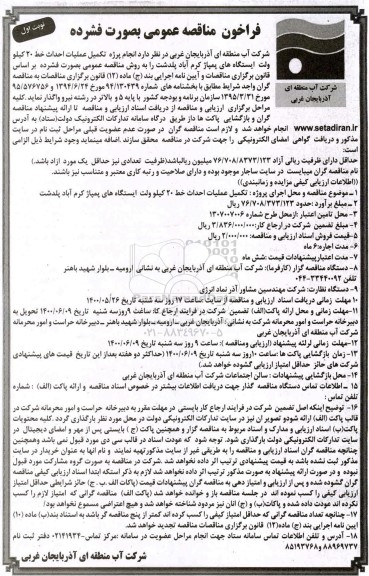 نوبت اول
فراخوان مناقصه عمومی بصورت فشرده
شرکت آب منطقه ای
آذربایجان غربی
شرکت آب منطقه ای آذربایجان غربی در نظر دارد انجام پروژه تکمیل عملیات احداث خط ۲۰ کیلو
ولت ایستگاه های پمپاژ کرم آباد پلدشت را به روش مناقصه عمومی بصورت فشرده بر اساس
قانون برگزاری مناقصات و آیین نامه اجرایی بند (ج) ماده (۱۲) قانون برگزاری مناقصات به مناقصه
گران واجد شرایط مطابق با بخشنامه های شماره ۹۴/۱۳۰۴۳۹ مورخ ۱۳۹۴/۶/۲۴ و ۹۵/۵۷۶۷۵۶
مورخ ۱۳۹۵/۳/۳۱ سازمان برنامه و بودجه کشور با پایه ۵ و بالاتر در رشته نیرو واگذار نماید. کلیه
مراحل برگزاری ارزیابی و مناقصه از دریافت اسناد ارزیابی و مناقصه تا ارائه پیشنهاد مناقصه
گران و بازگشایی پاکت ها از طریق درگاه سامانه تدارکات الکترونیکی دولت(ستاد) به آدرس
www.setadiran.ir انجام خواهد شد و لازم است مناقصه گران در صورت عدم عضویت قبلی مراحل ثبت نام در سایت
مذکور و دریافت گواهی امضای الکترونیکی را جهت شرکت در مناقصه محقق سازند. اضافه مینماید وجود شرایط ذیل الزامی
است:
حداقل دارای ظرفیت ریالی آزاد ۷۶/۷۰۸/۳۷۳/۱۲۳ میلیون ریالباشد(ظرفیت تعدادی نیز حداقل یک مورد آزاد باشد.)
نام مناقصه گران میبایست در سایت ساجار موجود بوده و دارای صلاحیت و رتبه کاری معتبر و متناسب نیز باشند.
((اطلاعات ارزیابی کیفی مزایده و زمانبندی))
۱- موضوع مناقصه و محل اجرای پروژه : تکمیل عملیات احداث خط ۲۰ کیلو ولت ایستگاه های پمپاژ کرم آباد پلدشت
۲- مبلغ برآورد: حدود ۷۶/۷۰۸/۳۷۳/۱۲۳ ریال
۳- محل تامین اعتبار :ازمحل طرح شماره ۱۳۰۷۰۰۷۰۶
۴- مبلغ تضمین شرکت در ارجاع کار: ۳/۸۳۶/۰۰۰/۰۰۰ ریال
۵- قیمت فروش اسناد ارزیابی و مناقصه: ۲/۰۰۰/۰۰۰ ریال
۶- مدت اجاره: ۶ ماه
۷- مدت اعتبار پیشنهادات قیمت :شش ماه
۸- دستگاه مناقصه گزار (کارفرما): شرکت آب منطقه ای آذربایجان غربی به نشانی ارومیه ـ بلوار شهید باهنر
تلفن ۳۳۴۴۰۰۹۲-۰۴۴
۹- دستگاه نظارت: شرکت مهندسین مشاور آذر نماد انرژی
۱۰- مهلت زمانی دریافت اسناد ارزیابی و مناقصه از سایت ساعت ۱۷ روز سه شنبه تاریخ ۱۴۰۰/۰۵/۲۶
۱۱- مهلت زمانی و محل ارائه پاکت(الف) تضمین شرکت در فرایند ارجاع کار: ساعت ۹روزسه شنبه تاریخ ۱۴۰۰/۰۶/۰۹ تحویل به
دبیرخانه حراست و امور محرمانه شرکت به نشانی: آذربایجان غربی ـ ارومیه ـ بلوار شهید باهنر ـ دبیرخانه حراست و امور محرمانه
شرکت آب منطقه ای آذربایجان غربی
۱۲- مهلت زمانی ارائه پیشنهاد (ارزیابی ومناقصه): ساعت ۹ روز سه شنبه تاریخ ۱۴۰۰/۰۶/۰۹
۱۳- زمان بازگشایی پاکت ها :ساعت ۱۰روز سه شنبه تاریخ ۱۴۰۰/۰۶/۰۹ (حداکثر دو هفته بعداز این تاریخ قیمت های پیشنهادی
شرکت های حائز حداقل امتیاز ارزیابی گشوده خواهد شد.)
۱۴- محل بازگشایی پیشنهادات : سالن اجتماعات شرکت آب منطقه ای آذربایجان غربی
۱۵- اطلاعات تماس دستگاه مناقصه گذار جهت دریافت اطلاعات بیشتر در خصوص اسناد مناقصه و ارائه پاکت (الف) : شماره
تلفن تماس :
۱۶- توضیح اینکه اصل تضمین شرکت در فرایند ارجاع کار بایستی در مهلت مقرر به دبیرخانه حراست و امور محرمانه شرکت در
قالب پاکت (الف) ارائه شودو تصویر آن نیز در سایت تدارکات الکترونیکی دولت در محل مورد نظر بارگذاری گردد. کلیه محتویات
پاکت(ب) اسناد ارزیابی و مدارک و اسناد مربوط به مناقصه گزار و همچنین پاکت (ج) بایستی پس از مهر و امضای دیجیتال در
سایت تدارکات الکترونیکی دولت بارگذاری شود. توجه شود که عودت اسناد در قالب سی دی مورد قبول نمی باشد وهمچنین
چنانچه مناقصه گران اسناد ارزیابی و مناقصه را به طریقی غیر از سایت مذکور تهیه نمایند و نام آنها به عنوان خریدار در سایت
مذکور ثبت نشده باشد به قیمت پیشنهادی ترتیب اثر داده نخواهد شد. شرکت در مناقصه به صورت گروه مشارکت مورد قبول
نبوده و در صورت ارائه پیشنهاد به صورت مذکور ترتیب اثر داده نخواهد شد لازم به ذکر استکه ابتدا اسناد ارزیابی کیفی مناقصه
گران گشوده شده و پس از ارزیابی و امتیاز دهی به مناقصه گران پیشنهادات قیمت (پاکات الف.ب.ج) حائز شرایطی حداقل امتیاز
ارزیابی کیفی را کسب نموده اند در جلسه مناقصه باز و خوانده خواهد شد (پاکت الف) مناقصه گرانی که امتیاز لازم را کسب
نکرده اند عودت داده شده و پاکات(ب) و (ج) انان نیز مردود شناخته خواهد شد و هیچ اعتراضی مسموع نخواهد بود/
۱۷- چنانچه تعداد مناقصه گرانی که حداقل امتیاز کیفی را کسب کرده اند کمتر از پنج مناقصه گر باشد به استناد بند(ب) ماده (۱۰)
آیین نامه اجرایی بند (ج) ماده(۱۲) قانون برگزاری مناقصات مناقصه تجدید خواهد شد.
۱۸- آدرس و تلفن اطلاعات تماس سامانه ستاد جهت انجام مراحل عضویت در سامانه :مرکز تماس-۰۲۱۴۱۹۳۴ دفتر ثبت نام
۸۸۹۶۹۷۳۷ و ۸۵۱۹۳۷۶۸
شرکت آب منطقه ای آذربایجان غربی